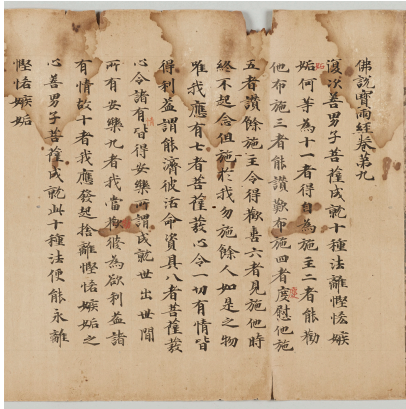 佛說寶雨經卷第九
復次善男子菩薩成就十種法離慳悋嫉
妬何等為十一者得自為施主二者能勸
他布施三者能讚歎布施四者慶慰他施
五者讚餘施主令得歡喜六者見施他時
終不起念但施於我勿施餘人如是之物
唯我應有七者菩薩發心令一切有情皆
得利益謂能濟彼活命資具八者菩薩發
心令諸有皆得安樂所謂成就世出世間
所有安樂九者我當歡彼為欲利益諸
有情故十者我應發起捨離慳悋嫉妬之
心善男子菩薩成就此十種法便能永離
慳悋嫉妬